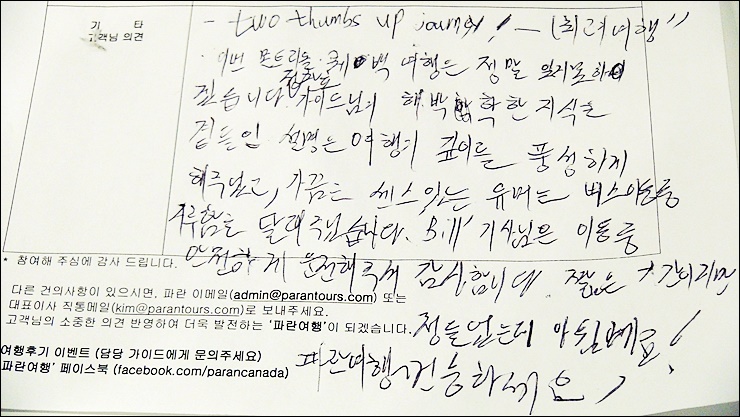 기 타
고객님 의견
- two thumbs up journey! - (최고여행")
이번 몬트리올·퀘벡 여행은 정말 잊지못하
깊습니다. 가이드님의 해박한 지식을
곁들인 설명은 여행의 깊이를 풍성하게
해주셨고, 가끔은 센스있는 유머는 버스이동중
지루함을 달래주셨습니다. Bill 기사님은 이동중
안전하게 운전해주셔 감사합니다. 짧은 시간이지만
정들었는데 아쉽네요!
파란여행 건승하세요,
* 참여해 주심에 감사 드립니다.
다른 건의사항이 있으시면, 파란 이메일(admin@parantours.com) 또는
대표이사 직통메일(kim@parantours.com)로 보내주세요.
고객님의 소중한 의견 반영하여 더욱 발전하는 '파란여행'이 되겠습니다.
여행후기 이벤트 (담당 가이드에게 문의주세요)
파란여행' 페이스북 (facebook.com/parancanada)